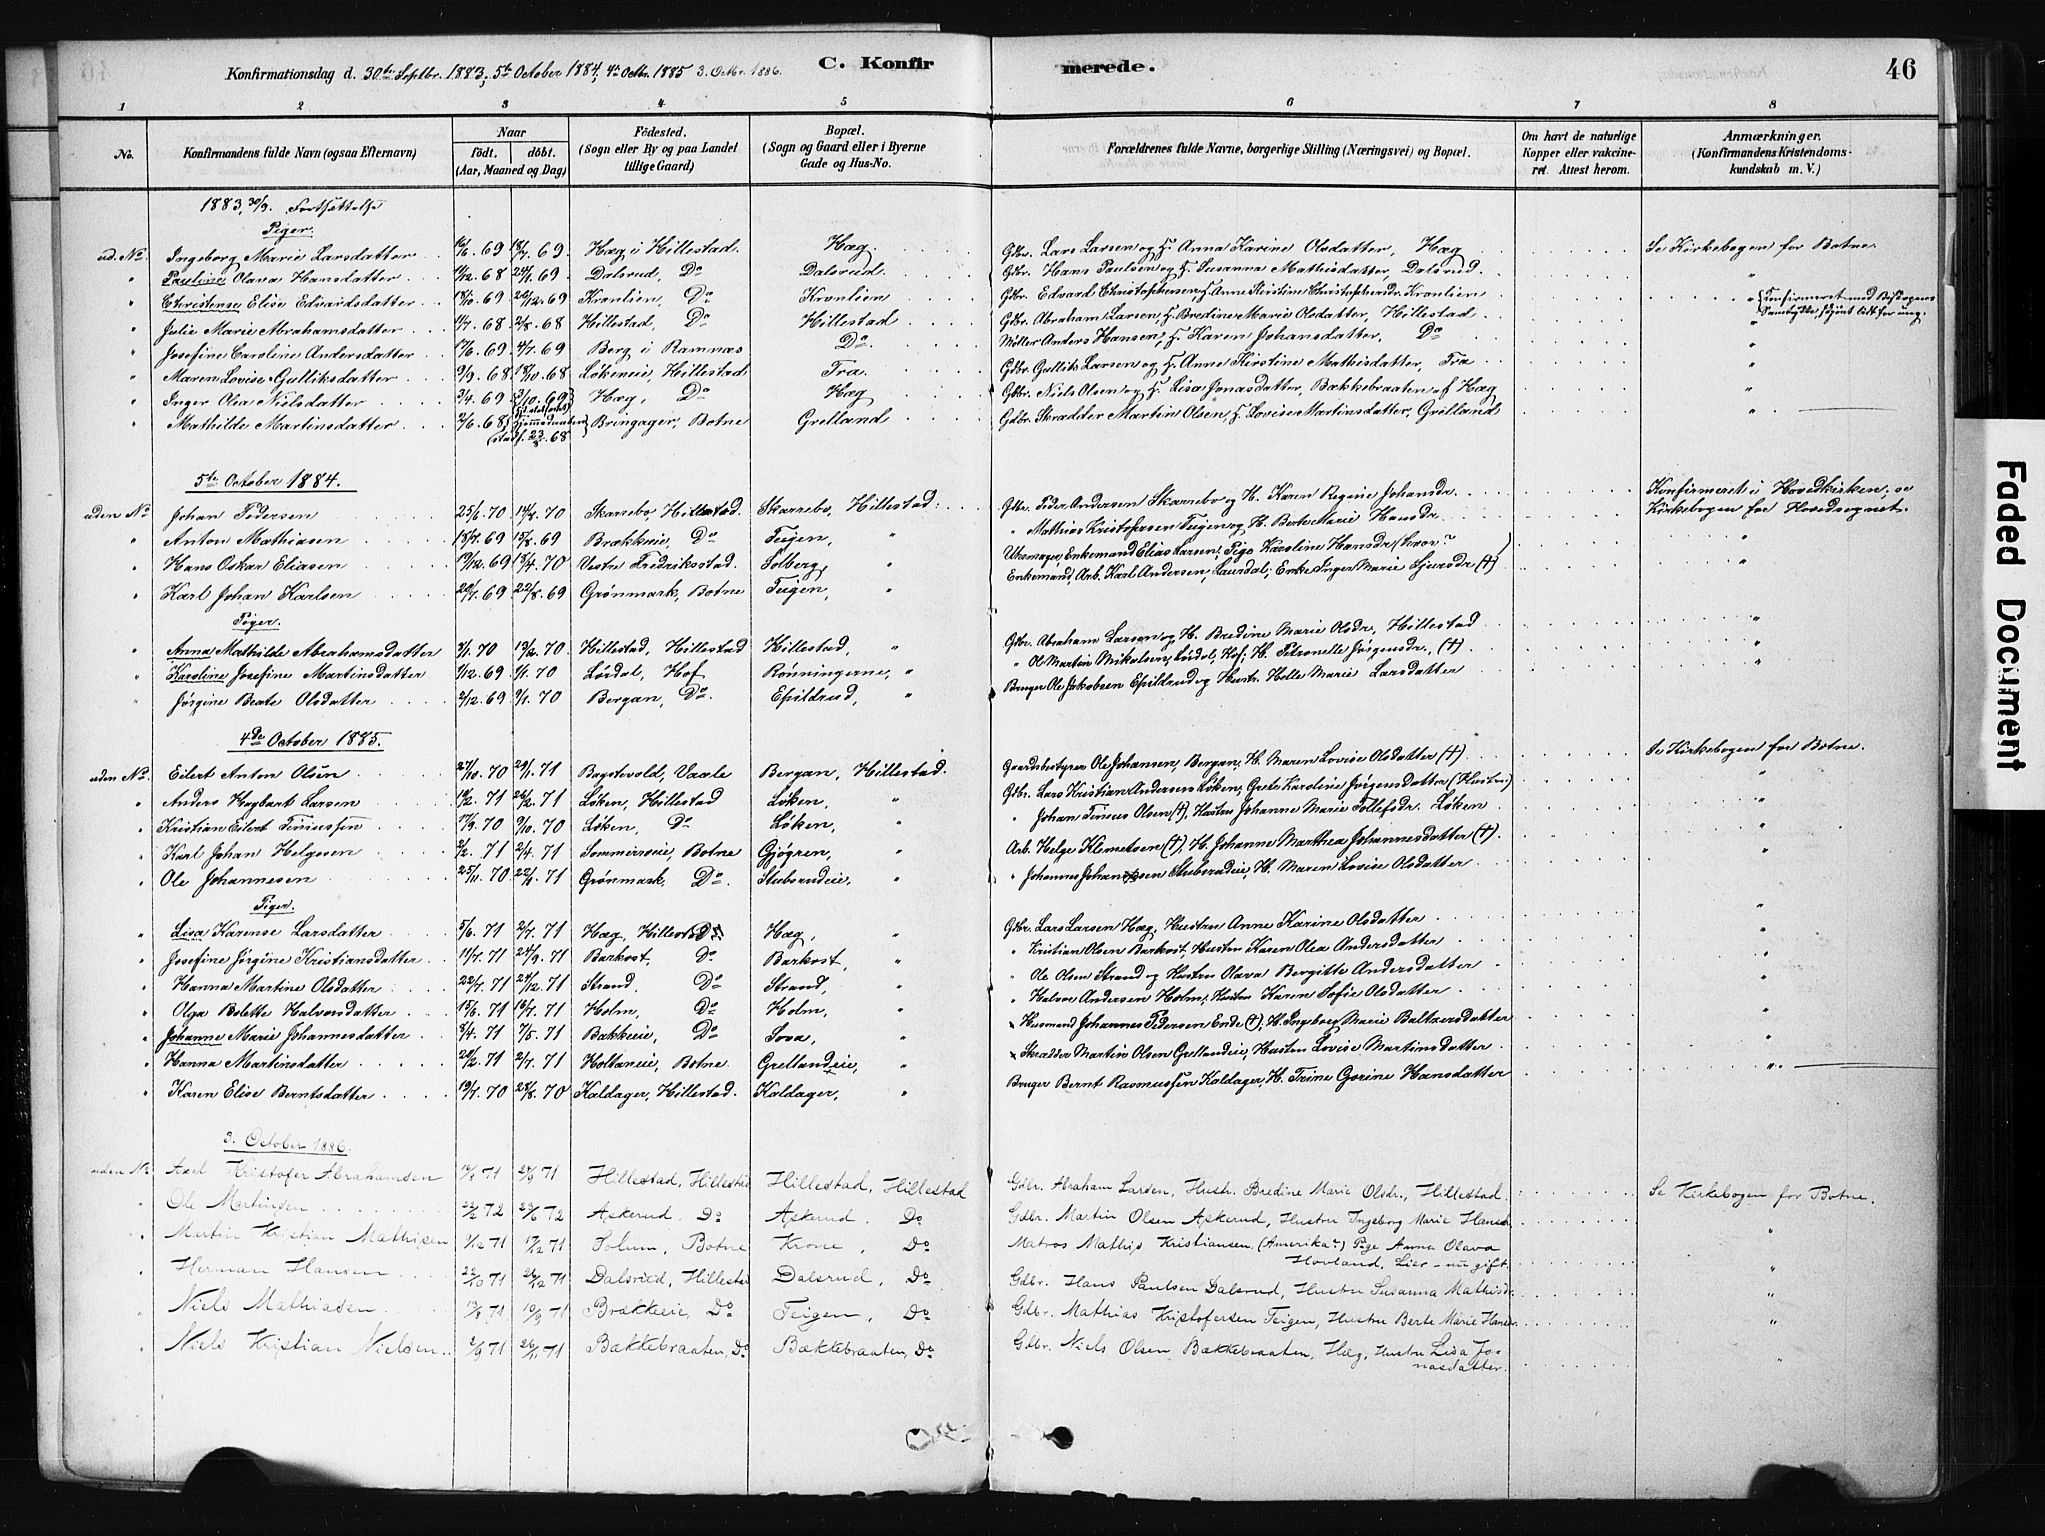 Konfirmationsdag d. 30te Septbr. 1883, 5te October 1884, 4de Octbr. 1885 3. Octbr. 1886.
C. Konfir merede.
46
1 2 3 4 5 6 7 8
No. Konfirmandens fulde Navn (ogsaa Efternavn) Naar født. døbt. (Aar, Maaned og Dag) Fødested. (Sogn eller By og paa Landet tillige Gaard) Bopæl. (Sogn og Gaard eller i Byerne Gade og Hus-No. Forældrenes fulde Navne, borgerlige Stilling (Næringsvei) og Bopæl. Om havt de naturlige Kopper eller vakcineret. Attest herom. Anmærkninger. (Konfirmandens Kristendomskundskab m. V.)
1883, 30/9. Fortsættelse
Piger.
ud. No. Ingeborg Marie Larsdatter 16/6 69 18/7 69 Hæg i Hillestad. Hæg. Gdbr. Lars Larsen og H. Anna Karine Olsdatter, Hæg Se Kirkebogen for Botne.
" Pauline Olava Hansdatter 11/12 68 24/1 69 Dalsrud, Do Dalsrud. Gdbr. Hans Paulsen og H. Susanna Mathisdatter, Dalsrud. "
" Christense Elise Edvardsdatter 18/10 69 26/12 69 Kronlien, Do Kronlien Gdbr. Edvard Christophersen, H. Anne Kirstine Christophersdr. Kronlien " Confirmeret med Biskopens Samtykke, skjønt lidt for ung.
" Julie Marie Abrahamsdatter 11/7 68 2/8 68 Hillestad, Do Hillestad Gdbr. Abraham Larsen, H. Bredine Marie Olsdatter, Hillestad "
" Josefine Caroline Andersdatter 17/6 69 4/7 69 Berg i Ramnæs Do. Møller Anders Hansen, H. Karen Johansdatter, Do "
" Maren Lovise Gulliksdatter 9/9 68 18/10 68 Løkeneie, Hillestad Fra. Gdbr. Gullik Larsen og H. Anne Kirstine Mathisdatter, Fra "
" Inger Olea Nielsdatter 2/4 69 3/10 69 Hæg, Do Hæg Gdbr. Niels Olsen og H. Lisa Jonasdatter, Bækkebraaten af Hæg "
" Mathilde Martinsdatter 2/6 68 Bringager, Botne Grelland Gdbr. Skrædder Martin Olsen, H. Lovise Martinsdatter, Grelland "
5te October 1884.
uden No Johan Pedersen 25/6 70 14/8 70 Skarrebo, Hillestad. Skarrebo, Hillestad. Gdbr. Peder Andersen Skarrebo og H. Karen Regine Johansdr. Konfirmeret i Hovedkirken, se Kirkebogen for Hovedsognet.
" Anton Mathiasen 13/7 69 15/8 69 Brækkeie, Do Teigen, " " Mathias Kristofersen Teigen og H. Berte Marie Hansdr. "
" Hans Oskar Eliasen 19/12 69 18/4 70 Vestre Fredriksstad. Solberg, " Uhrmager, Enkemand Elias Larsen; Pige Karoline Hansdr "
" Karl Johan Karlsen 20/7 69 22/8 69 Grønmark, Botne Teigen, " Enkemand, Arb. Karl Andersen, Laurdal; Enke Inger Marie Sjursdr (†)
Piger.
" Anna Mathilde Abrahamsdatter 3/1 70 19/2 70 Hillestad, Hillestad Hillestad, " Gdbr. Abraham Larsen og H. Bredine Marie Olsdr, Hillestad "
" Karoline Josefine Martinsdatter 1/12 69 9/1 70 Lørdal, Hof Rønningerne, " " Ole Martin Mikalsen, Lørdal, Hof; H. Petronelle Jørgensdr. (†) "
" Jørgine Beate Olsdatter 2/12 69 9/1 70 Bergan, Do. Epildrud, " Bruger Ole Jakobsen Epildrud og Hustr. Helle Marie Larsdatter "
4de October 1885.
uden No. Eilert Anton Olsen 27/10 70 29/1 71 Bøstevold, Vaale Bergan, Hillestad. Gaardsbestyrer Ole Johansen, Bergan, H. Maren Lovise Olsdatter (†) Se Kirkebogen for Botne.
" Anders Hagbart Larsen 10/2 71 26/2 71 Løken, Hillestad Løken, " Gdbr. Lars Kristian Andersen Løken; Grete Karoline Jørgensdatter (Hustru) "
" Kristian Eilert Tiniussen 17/9 70 9/10 70 Løken, Do Løken, " " Johan Tinius Olsen (†), Hustru Johanne Marie Tollefsdr. Løken "
" Karl Johan Helgesen 2/2 71 2/4 71 Sommerroeie, Botne Gjøgren, " Arb. Helge Klemetsen (†), H. Johanne Marthea Johannesdatter (†) "
" Ole Johannesen 25/11 70 22/1 71 Grønmark, Do. Stubsrudeie, " " Johannes Johannesen Stubsrudeie, H. Maren Lovise Olsdatter "
Piger.
" Lisa Karense Larsdatter 5/6 71 2/7 71 Hæg, Hillestad Hæg, " Gdbr. Lars Larsen Hæg, Hustru Anne Karine Olsdatter "
" Josefine Jørgine Kristiansdatter 11/7 71 24/9 71 Barkost, Do Barkost, " " Kristian Olsen Barkost, Hustru Karen Olea Andersdatter "
" Hanna Martine Olsdatter 22/7 71 24/12 71 Strand, Do Strand, " " Ole Olsen Strand og Hustru Olava Bergitte Andersdatter "
" Olga Bolette Halvorsdatter 15/6 71 16/7 71 Holm, Do Holm, " " Halvor Andersen Holm, Hustru Karen Sofie Olsdatter "
" Johanne Marie Johannesdatter 8/4 71 7/5 71 Bakkeie, Do Sova, " Husmand Johannes Pedersen Ende (†), H. Ingeborg Marie Baltzersdatter "
" Hanna Martinsdatter 20/2 71 2/7 71 Holtaneie, Botne Grellandeie, " Skrædder Martin Olsen Grellandeie, Hustru Lovise Martinsdatter "
" Karen Elise Berntsdatter 19/7 70 28/8 70 Kaldager, Hillestad. Kaldager, " Bruger Bernt Rasmussen Kaldager, H. Trine Gorine Hansdatter "
3. October 1886.
uden No. Axel Kristofer Abrahamsen 71 24/9 71 Hillestad, Hillestad Hillestad, Hillestad Gdbr. Abraham Larsen, Hustr. Bredine Marie Olsdr., Hillestad Se Kirkebogen for Botne.
" Ole Martinsen 22/2 72 72 Askerud, Do Askerud, Do Gdbr. Martin Olsen Askerud, Hustru Ingeborg Marie Hansdr "
" Martin Kristian Mathisen 1/12 71 17/12 71 Solum, Botne Krone, Do Matros Mathis Kristiansen (Amerika?) Pige Anna Olava Hovland, Lier - nu gift. "
" Herman Hansen 22/10 71 26/12 71 Dalsrud, Hillestad Dalsrud, Do Gdbr. Hans Paulsen Dalsrud, Hustru Susanna Mathisdr "
" Niels Mathiasen 13/8 71 10/9 71 Brækkeie, Do Teigen, Do Gdbr. Mathias Kristofersen Teigen, Hustru Berte Marie Hansdr. "
" Niels Kristian Nielsen 2/9 71 26/11 71 Bækkebraaten, Do Bækkebraaten, Do Gdbr. Niels Olsen Bækkebraaten, Hæg, Hustru Lisa Jonasdatter. "
Faded Document